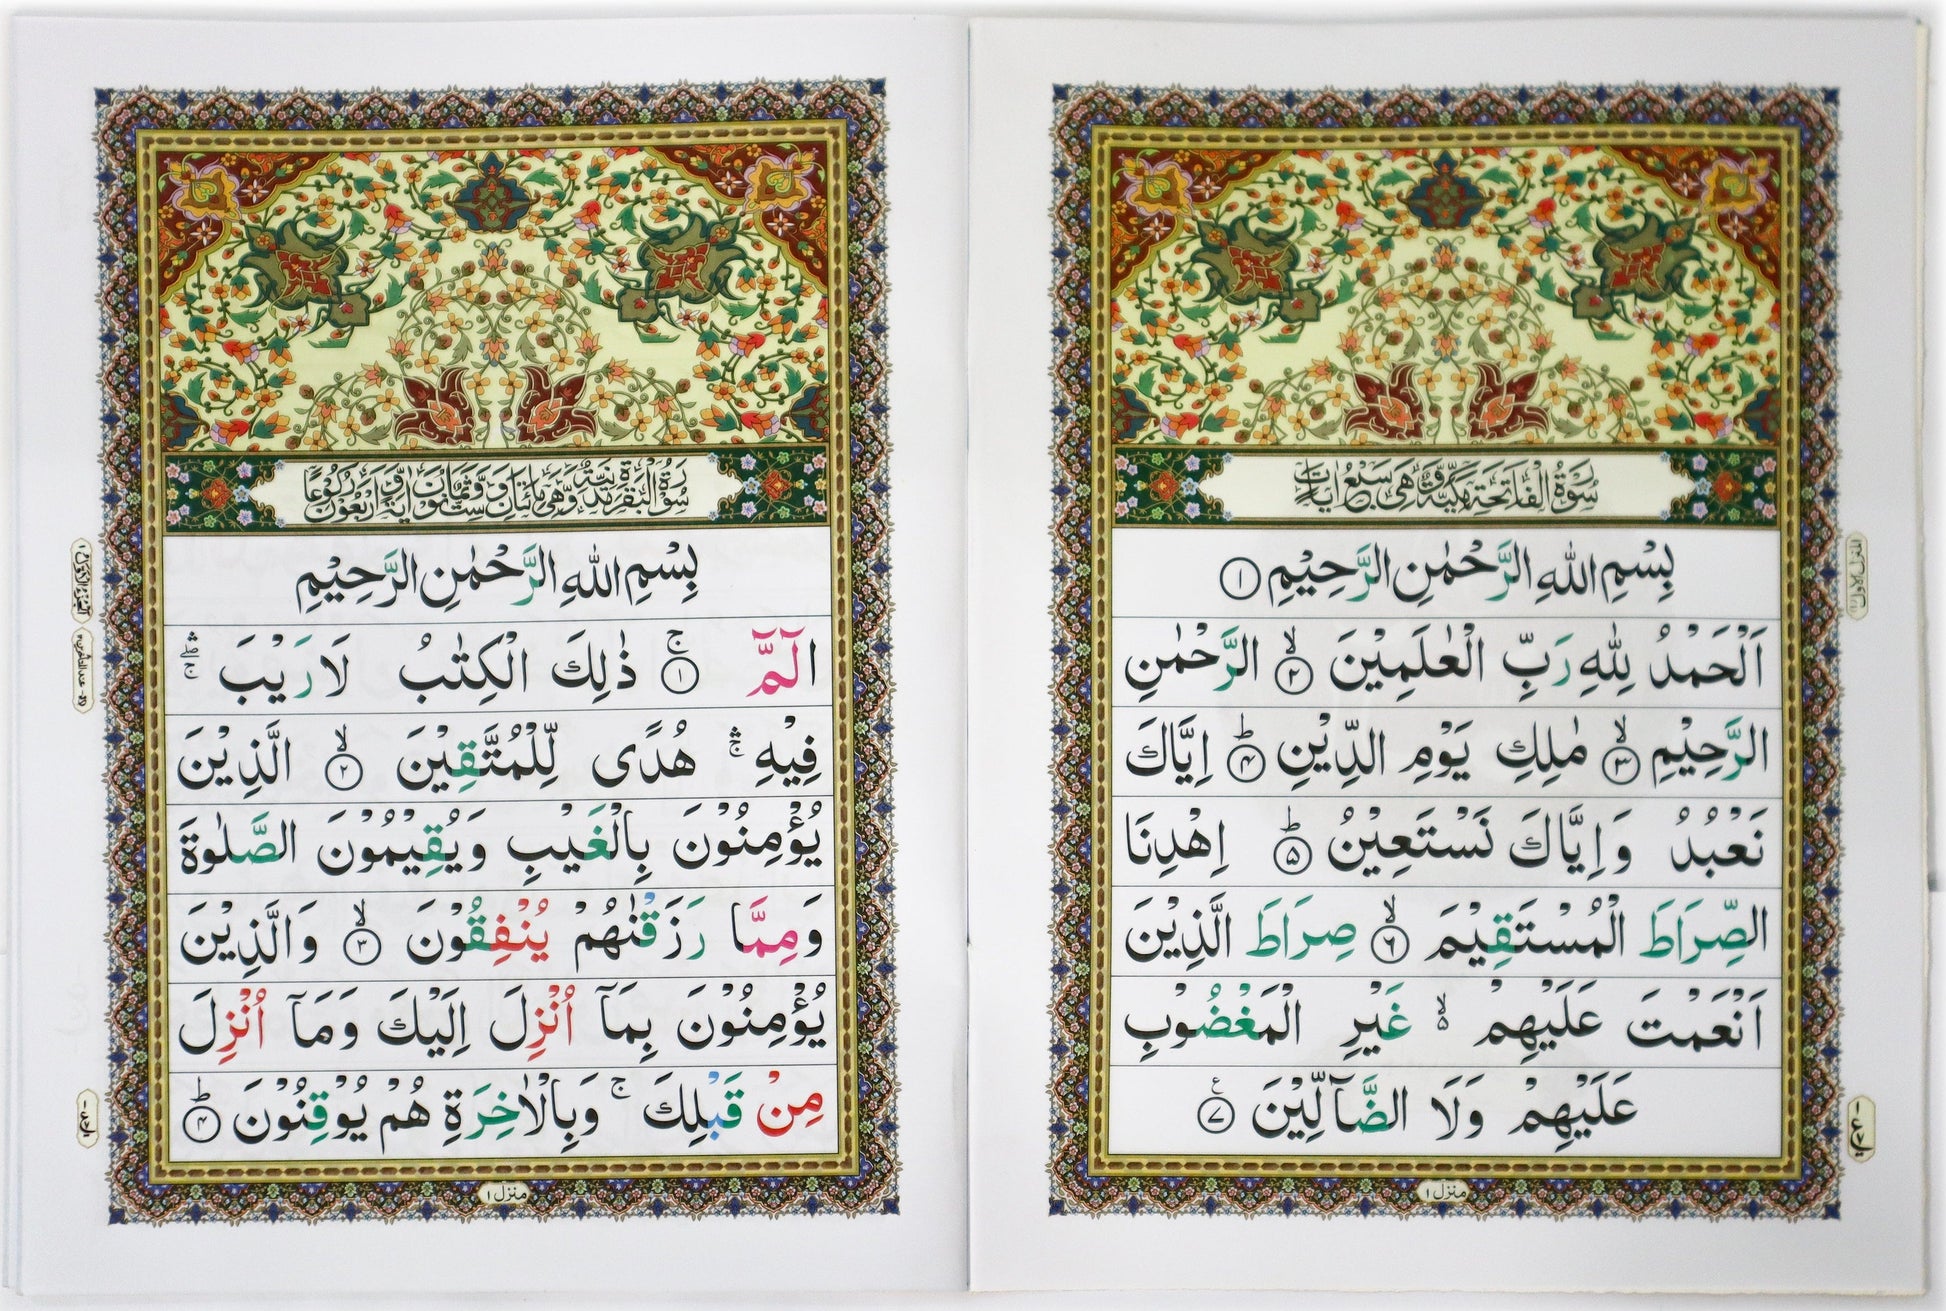 سُوْرَةُ الْفَاتِحَةِ مَكِّيَّةٌ وَّهِيَ سَبْعُ اٰيَاتٍ
بِسْمِ اللّٰهِ الرَّحْمٰنِ الرَّحِيْمِ ١
اَلْحَمْدُ لِلّٰهِ رَبِّ الْعٰلَمِيْنَ ۙ٢ الرَّحْمٰنِ
الرَّحِيْمِ ۙ٣ مٰلِكِ يَوْمِ الدِّيْنِ ؕ٤ اِيَّاكَ
نَعْبُدُ وَاِيَّاكَ نَسْتَعِيْنُ ؕ٥ اِهْدِنَا
الصِّرَاطَ الْمُسْتَقِيْمَ ۙ٦ صِرَاطَ الَّذِيْنَ
اَنْعَمْتَ عَلَيْهِمْ ۙ٥ غَيْرِ الْمَغْضُوْبِ
عَلَيْهِمْ وَلَا الضَّآلِّيْنَ ٧ع
منزل ١
المنزل الاول
سُوْرَةُ الْبَقَرَةِ مَدَنِيَّةٌ وَّهِيَ مِائَتَانِ وَّسِتٌّ وَّثَمَانُوْنَ اٰيَةً وَّاَرْبَعُوْنَ رُكُوْعًا
بِسْمِ اللّٰهِ الرَّحْمٰنِ الرَّحِيْمِ
الٓمّٓ ۚ١ ذٰلِكَ الْكِتٰبُ لَا رَيْبَ ۛۖۚ
فِيْهِ ۛۚ هُدًى لِّلْمُتَّقِيْنَ ۙ٢ الَّذِيْنَ
يُؤْمِنُوْنَ بِالْغَيْبِ وَيُقِيْمُوْنَ الصَّلٰوةَ
وَمِمَّا رَزَقْنٰهُمْ يُنْفِقُوْنَ ۙ٣ وَالَّذِيْنَ
يُؤْمِنُوْنَ بِمَآ اُنْزِلَ اِلَيْكَ وَمَآ اُنْزِلَ
مِنْ قَبْلِكَ ۚ وَبِالْاٰخِرَةِ هُمْ يُوْقِنُوْنَ ؕ٤
منزل ١